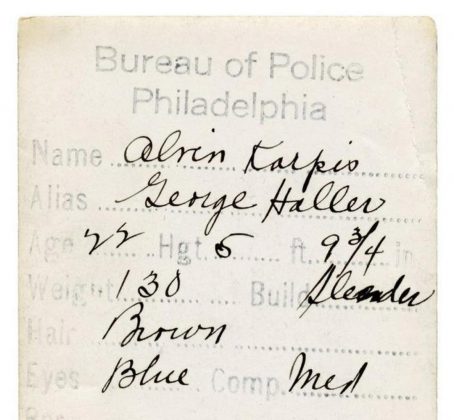 Bureau of Police
Philadelphia
Name Alvin Karpis
Alias George Haller
Age 22 Hgt 5 ft. 9 3/4 in
Weight 130 Build Slender
Hair Brown
Eyes Blue Comp. Med